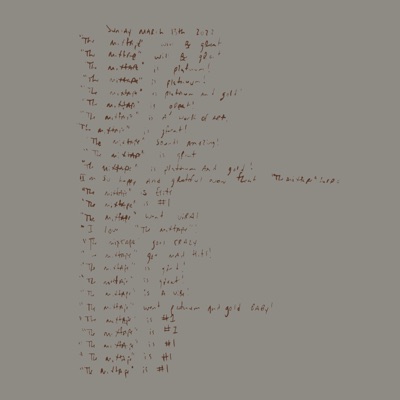 Sunday March 13th 2022
"The mixtape" will be great
"The mixtape" will be great
"The mixtape" is platinum!
"The mixtape" is platinum!
"The mixtape" is platinum and gold!
"The mixtape" is great!
"The mixtape" is a work of art.
"The mixtape" is great!
"The mixtape" sounds amazing!
"The mixtape" is great
"The mixtape" is platinum and gold!
so happy and grateful now that "The mixtape"
"The mixtape" is
"The mixtape" is #1
"The mixtape" went viral!
"I love "The mixtape"
"The mixtape" goes crazy
"The mixtape" got hits!
"The mixtape" is great!
"The mixtape" is great!
"The mixtape" is a vibe!
"The mixtape" went platinum and gold easy!
"The mixtape" is #1
"The mixtape" is #1
"The mixtape" is #1
"The mixtape" is #1
"The mixtape" is #1